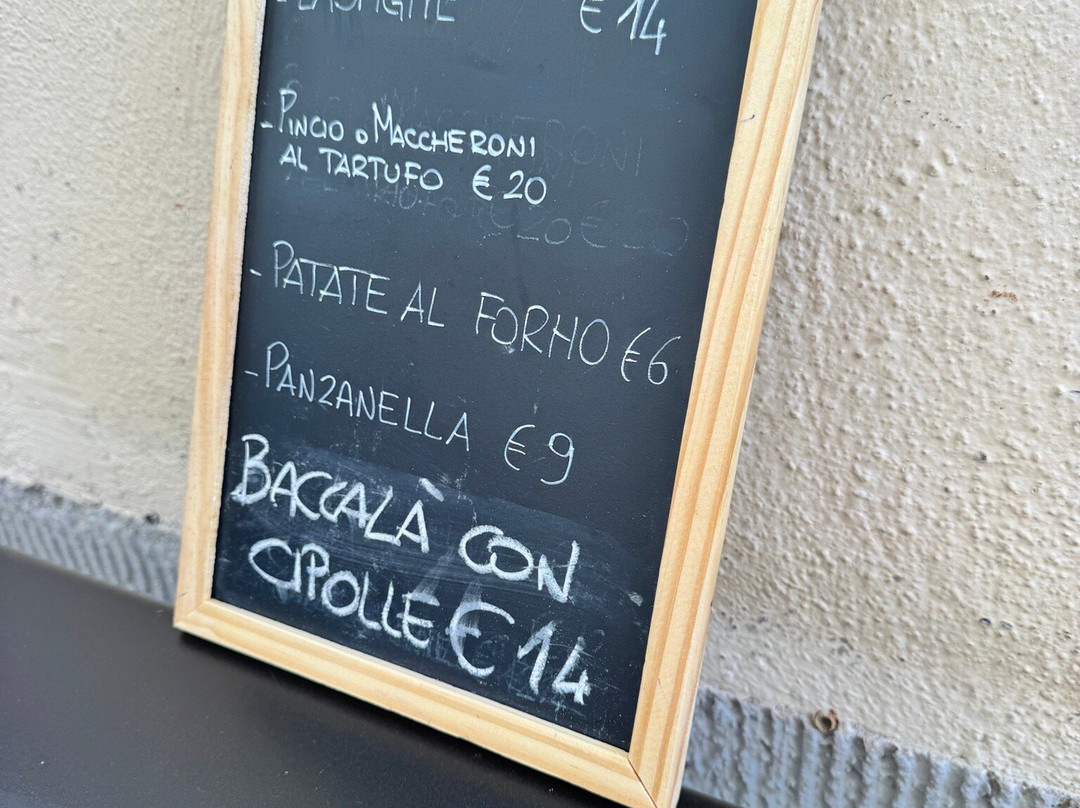 - LASAGNE € 14
- PINCIO O MACCHERONI
AL TARTUFO € 20
- PATATE AL FORNO €6
- PANZANELLA €9
BACCALÀ CON
CIPOLLE € 14